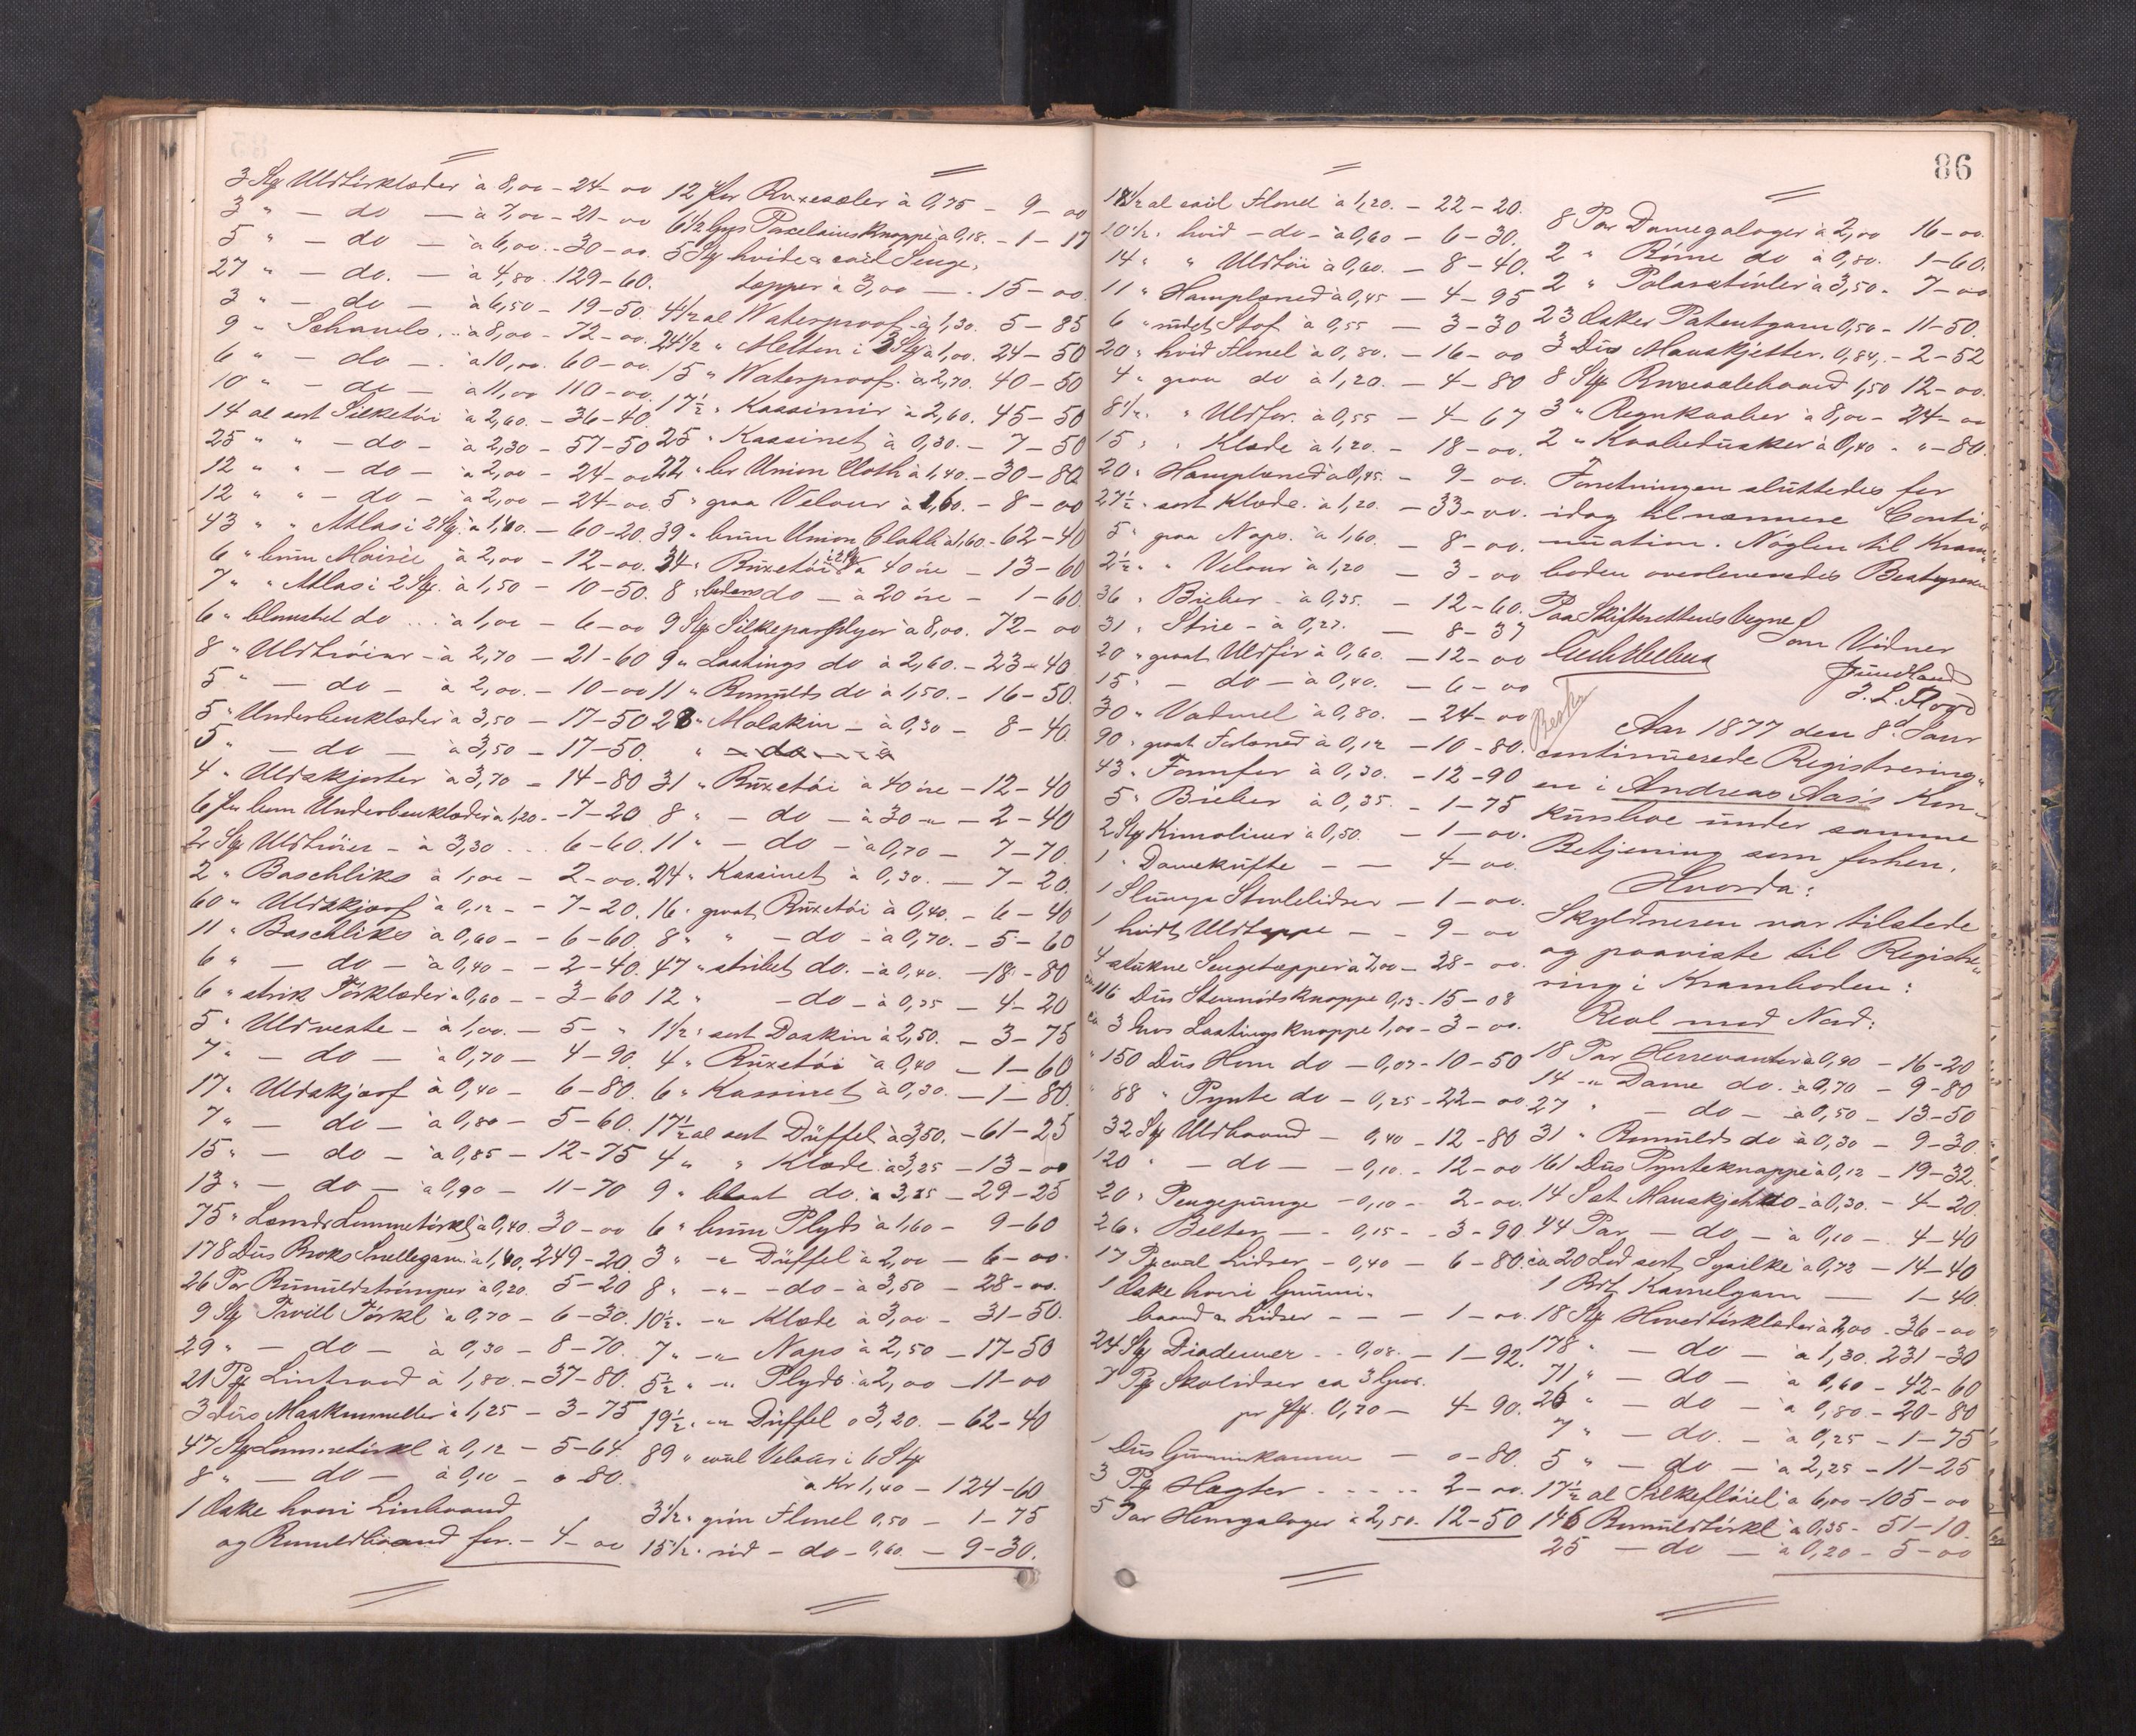 3 Stk Uldtörklæder à 8,00 - 24 - 00
3 " - do - à 7,00 - 21 - 00
5 " - do - à 6,00 - 30 - 00
27 " - do. - à 4,80. 129 - 60.
3 " - do - à 6,50 - 19 - 50.
9 " Schawls .. à 8,00 - 72 - 00.
6 " - do - . à 10,00. 60 - 00.
10 " - do - à 11,00 110 - 00.
14 al sort Silketöi à 2,60. - 36 - 40.
25 " " - do - à 2,30 - 57 - 50
12 " " - do - à 2,00 - 24 - 00
12 " " - do - à 2,00 - 24 - 00.
43 " " Atlas i 2 Stk. à 1,40. - 60 - 20.
6 " brun Moirée à 2,00 - 12 - 00.
7 " " Atlas i 2 Stk. à 1,50 - 10 - 50.
6 " blomstet do ... à 1,00 - 6 - 00
8 " Uldtröier - à 2,70 - 21 - 60
5 " - do - à 2,00. - 10 - 00
5 " Underbenklæder à 3,50 - 17 - 50
5 " - do - à 3,50 - 17 - 50.
4 " Uldskjorter à 3,70 - 14 - 80
6 brun Underbenklæder à 1,20 - 7 - 20
2 Stk Uldtröier - à 3,30 ... 6 - 60.
2 " Baschliks à 1,00 - 2 - 00.
60 " Uldskjærf à 0,12 - - 7 - 20.
11 " Baschliks à 0,60 - - 6 - 60.
6 " - do - à 0,40 - - 2 - 40.
6 " strik Törklæder à 0,60 - - 3 - 60
5 " Uldveste - à 1,00. - 5 - "
7 " - do - à 0,70 - 4 - 90.
17 " Uldskjærf à 0,40 - 6 - 80.
7 " - do - à 0,80 - 5 - 60.
15 " - do - à 0,85 - 12 - 75
13 " - do - à 0,90 - 11 - 70
75 " Lærreds Lommetörkl à 0,40. 30 - 00
178 Dus Broks Snellegarn à 1,40. 249 - 20.
26 Par Bomuldströmper à 0,20. 5 - 20
9 Stk Twill Törkl à 0,70 - 6 - 30.
29 " - do - à 0,30 - 8 - 70.
21 Pk Lintraad à 1,80. - 37 - 80.
3 Dus Maskinsneller à 1,25 - 3 - 75
47 Stk Lommetörkl à 0,12 - 5 - 64
8 " - do - à 0,10 - 0 - 80.
1 Æske hvori Linbaand
og Bomuldbaand for. - 4 - 00
12 Buxeseler à 0,75 - 9 - 00
6½ Gros Porcelainsknappe à 0,18. - 1 - 17
5 Stk hvide & coul Senge-
tæpper à 3,00 - . 15 - 00.
4½ al Waterproof à 1,30. 5 - 85
24½ " Melton i 3 Stk à 1,00. 24 - 50
15 " Waterproof. à 2,70. 40 - 50
17½ " Kassimir à 2,60. 45 - 50
25 " Kassinet à 0,30. - 7 - 50
22 " br Union Cloth à 1,40. - 30 - 80
5 " graa Velour à 1,60. - 8 - 00
39 " brun Union Clothh à 1,60 - 62 - 40
34 " Buxetöi i 2 Stk à 40 öre - 13 - 60
8 " do - à 20 öre - 1 - 60.
9 Stk Silkeparaplyer à 8,00. 72 - 00
9 " Lastings do à 2,60. - 23 - 40
11 " Bomulds do à 1,50. - 16 - 50.
28 " Molskin - à 0,30 - 8 - 40.
" - do - à
31 " Buxetöi à 40 öre - 12 - 40
8 " - do - à 30 " - 2 - 40
11 " - do - à 0,70 - 7 - 70.
24 " Kassinet à 0,30. - 7 - 20.
16 " graat Buxetöi à 0,40. - 6 - 40
8 " " - do - à 0,70. - 5 - 60
47 " stribet do. - à 0,40. - 18 - 80
12 " - do - à 0,35 - 4 - 20
1½ " sort Doskin à 2,50. - 3 - 75
4 " Buxetöi à 0,40 - 1 - 60
6 " Kassinet à 0,30. - 1 - 80.
17½ al sort Düffel à 3,50. - 61 - 25
4 " " Klæde à 3,25 - 13 - 00
9 " blaat do. à 3,25 - 29 - 25
6 " brun Plyds à 1,60 - 9 - 60
3 " - " Düffel à 2,00 - 6 - 00.
8 " - " - do - à 3,50 - 28 - 00.
10½ " - " Klæde à 3,00 - 31 - 50.
7 " - " Naps à 2,50 - 17 - 50
5½ " - " Plyds à 2,00 - 11 - 00
19½ " - " Düffel à 3,20. - 62 - 40
89 " coul Velour i 6 Stk
à Kr 1,40 - 124 - 60
3½ " grön Flonel 0,50 - 1 - 75
15½ " röd - do - 0,60. - 9 - 30.
86
18½ al coul Flonel à 1,20. - 22 - 20.
10½ " hvid - do - à 0,60 - 6 - 30.
14 " " Uldtöi à 0,60. - 8 - 40.
11 " Hamplærred à 0,45 - 4 - 95
6 " rudet Stof à 0,55 - 3 - 30
20 " hvid Flonel à 0,80. - 16 - 00
4 " graa do à 1,20. - 4 - 80
8½ " " Uldfor. à 0,55 - 4 - 67
15 " " Klæde à 1,20. - 18 - 00.
20 " Hamplærred à 0,45. - 9 - 00.
27½ " sort Klæde. à 1,20. - 33 - 00.
5 " graa Naps. à 1,60. - 8 - 00.
2½ " " Velour à 1,20 - 3 - 00
36 " Bieber - à 0,35. - 12 - 60.
31 " Strie - à 0,27. - 8 - 37
20 " graat Uldfór à 0,60. - 12 - 00
15 " - do - à 0,40. - 6 - 00
30 " Vadmel à 0,80. - 24 - 00
90 " graat Forlærred à 0,12 - 10 - 80.
43 " Formfor à 0,30. - 12 - 90
5 " Bieber à 0,35. - 1 - 75
2 Stk Krinoliner à 0,50. - 1 - 00.
1 " Damekufte - - 4 - 00.
1 Slump Stövlelidser - 1 - 00.
1 hvidt Uldtæppe - - 9 - 00
4 stukne Sengetæpper à 7,00 - 28 - 00.
ca 116 Dus Steennödsknappe 0,13 - 15 - 08
ca 3 Gros Lastingsknappe 1,00 - 3 - 00.
" 150 Dus Horn do - 0,07 - 10 - 50
" 88 " Pynte do - 0,25 - 22 - 00.
32 Stk Uldbaand - 0,40 - 12 - 80
120 " - do - - 0,10 - 12 - 00
20 " Pengepunge - 0,10 - 2 - 00.
26 " Belter - - 0,15 - . 3 - 90
17 Pk coul Lidser - 0,40 - 6 - 80.
1 Æske hvori Gummi-
baand & Lidser - - - 1 - 00.
24 Stk Diademer .. 0,08. - 1 - 92.
7 Pk Skolidser ca 3 Gros.
pr Pk. 0,70 - 4 - 90.
1 Dus Gummikamme - 0 - 80.
3 Pk Hægter - . . . . 2 - 00.
5 Par Herregaloger à 2,50. 12 - 50
8 Par Damegaloger à 2,00 16 - 00.
2 " Börne do à 0,80. 1 - 60.
2 " Polarstövler à 3,50. 7 - 00
23 Æsker Patentgarn 0,50 - 11 - 50.
3 Dus Manskjetter. 0,84. - 2 - 52
8 Stk Buxeselebaand 1,50 12 - 00.
3 " Regnkaaber à 8,00 - 24 - 00
2 " Kaabedusker à 0,40 - " - 80.
Forretningen sluttedes for
idag til nærmere Conti-
nuation. Nöglen til Kram-
boden overleveredes Bestyreren
Paa Skifterettens Vegne
Som Vidner
Sundland
Aar 1877 den 8d Janr
continuerede Registrering-
en i Andreas Aas's Kon-
kursboe under samme
Betjening som forhen.
Hvorda:
Skyldneren var tilstede
og paaviste til Registre-
ring i Kramboden:
Reol mod Nord:
18 Par Herrevanter à 0,90 - 16 - 20
14 - " Dame do. à 0,70 - 9 - 80
27 " - do - à 0,50 - 13 - 50
31 " Bomulds do à 0,30 - 9 - 30.
161 Dus Pynteknappe à 0,12 - 19 - 32.
14 Sæt Manskjet do - à 0,30. - 4 - 20.
44 Par - do - à 0,10 - 4 - 40
ca 20 Lod sort Sysilke à 0,72 - 14 - 40
1 Brt Kamelgarn - 1 - 40.
18 Stk Hovedtörklæder à 2,00 - 36 - 00
178 " - do - à 1,30. 231 - 30
71 " - do - à 0,60 - 42 - 60
26 " - do - à 0,80 - 20 - 80
7 " - do. - à 0,25 - 1 - 75
5 " - do - à 2,25 - 11 - 25
17½ al Silkeflöiel à 6,00 - 105 - 00
146 Bomuldtörkl à 0,35 - 51 - 10.
25 - do - à 0,20 - 5 - 00